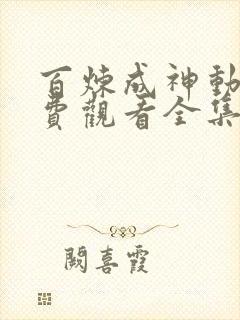 百煉成神動
費觀看全集
闕喜霞